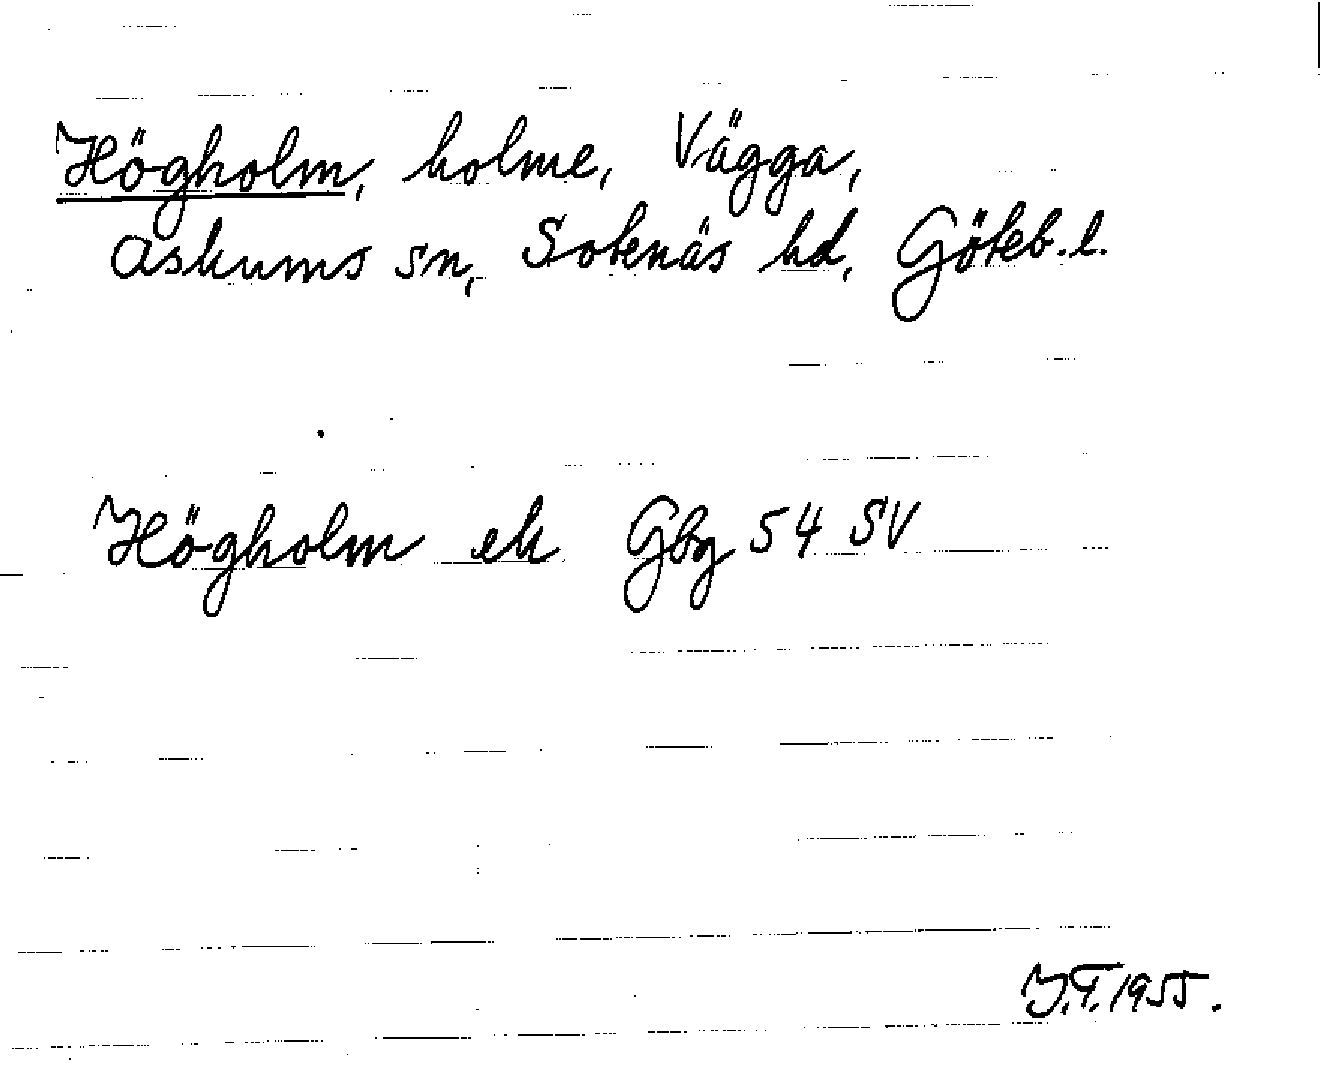 Högholm, holme, Vägga,
Askums sn, Sotenäs hd, Göteb. l.
Högholm ek Gbg 54 SV
Y.T. 1955.